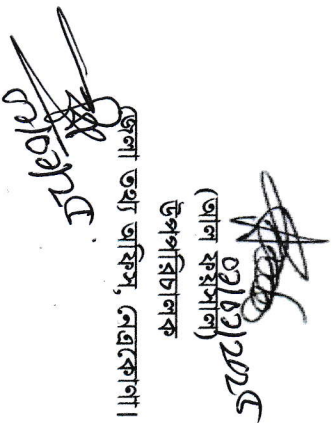 ০১/০১/২০২৫
(আল ফয়সাল)
উপপরিচালক
জেলা তথ্য অফিস, নেত্রকোণা।